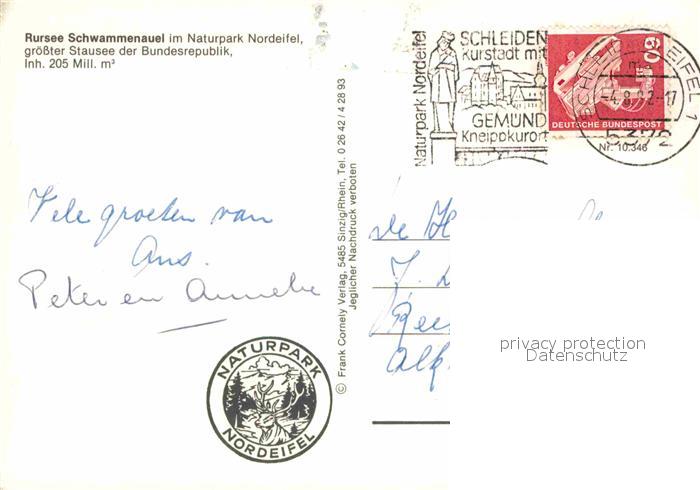 Rursee Schwammenauel im Naturpark Nordeifel,
größter Stausee der Bundesrepublik,
Inh. 205 Mill. m³
Naturpark Nordeifel
SCHLEIDEN
Kurstadt mit
GEMÜND
Kneippkurort
60
DEUTSCHE BUNDESPOST
SCHLEIDEN, EIFEL 1
-4.8.82-17
5372
Nr. 10.346
Vele groeten van
Ans.
Peter en Anneke
© Frank Cornely Verlag, 5485 Sinzig/Rhein, Tel. 0 26 42 / 4 28 93
Jeglicher Nachdruck verboten
de H
J.
Alk
privacy protection
Datenschutz
NATURPARK
NORDEIFEL